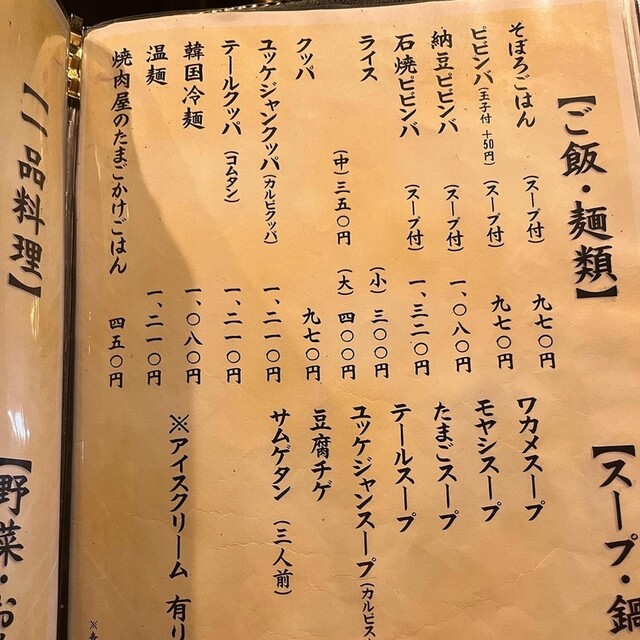 【ご飯・麺類】
そぼろごはん (スープ付) 九七〇円
ビビンバ(玉子付 +50円) (スープ付) 九七〇円
納豆ビビンバ (スープ付) 一、〇八〇円
石焼ビビンバ (スープ付) 一、三二〇円
ライス (小) 三〇〇円
(中) 三五〇円 (大) 四〇〇円
クッパ 九七〇円
ユッケジャンクッパ(カルビクッパ) 一、二一〇円
テールクッパ(コムタン) 一、二一〇円
韓国冷麺 一、〇八〇円
温麺 一、二一〇円
焼肉屋のたまごかけごはん 四五〇円
【スープ・鍋
ワカメスープ
モヤシスープ
たまごスープ
テールスープ
ユッケジャンスープ(カルビス
豆腐チゲ
サムゲタン (三人前)
※アイスクリーム 有り
※
【一品料理】
【野菜・お